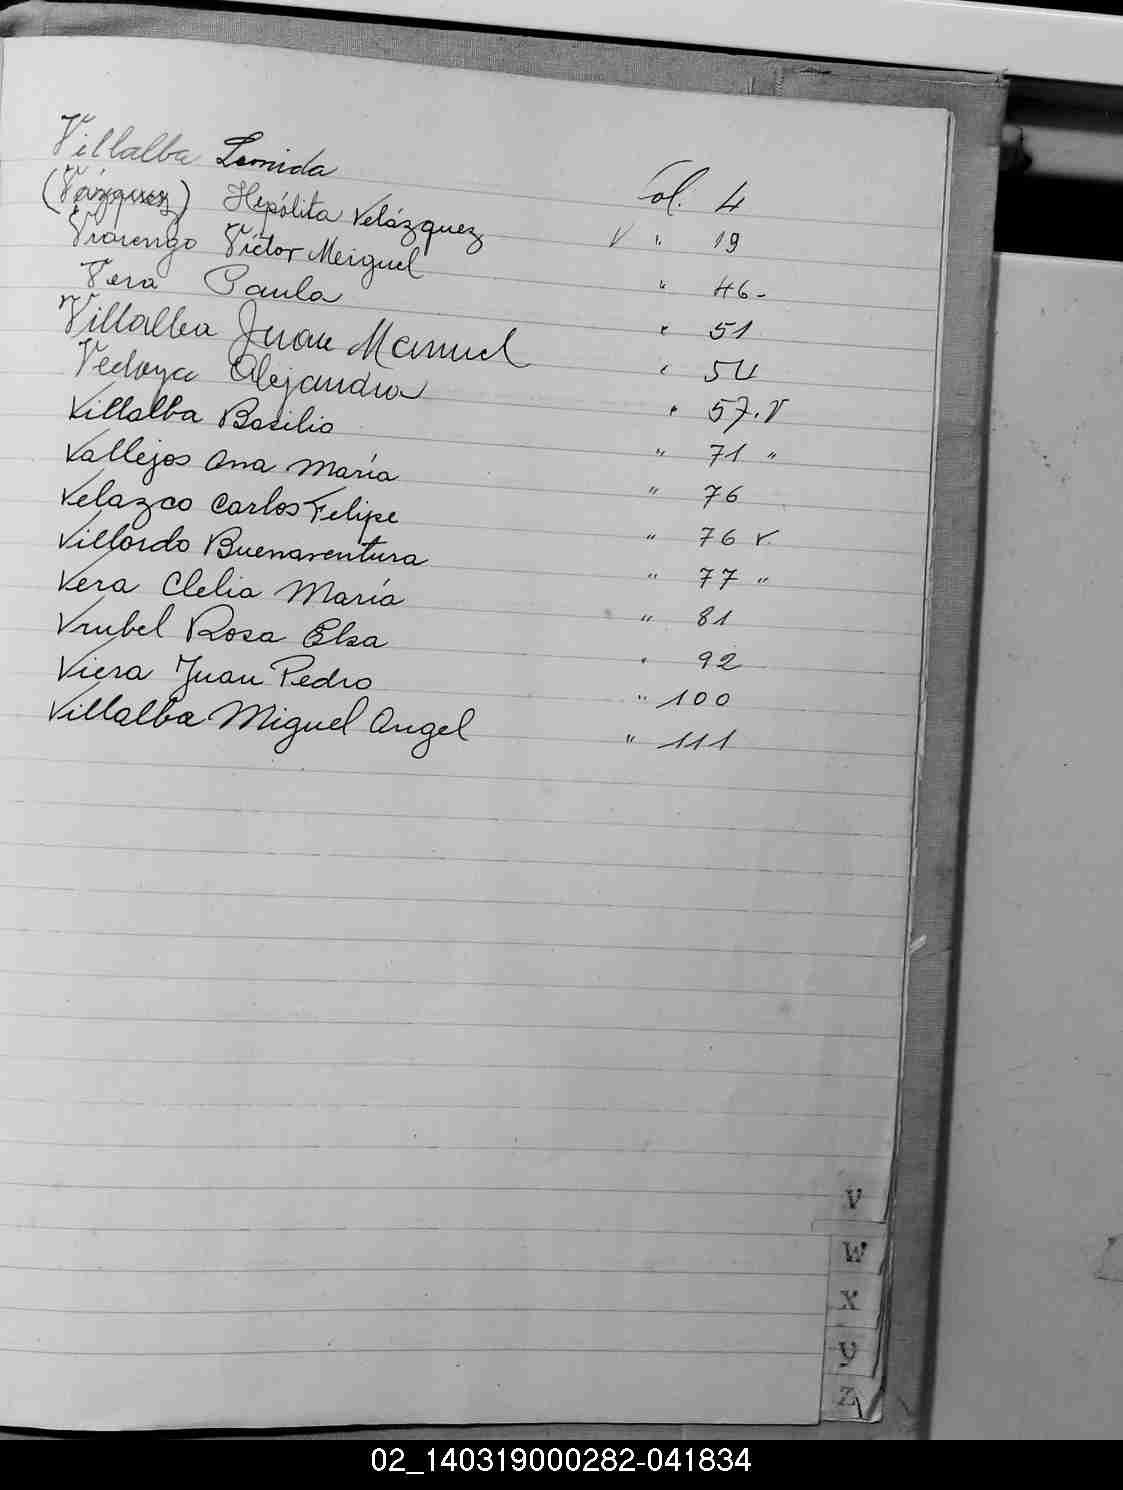 Villalba Leonida Fol. 4
(Vázquez) Hipólita Velázquez V " 19
Victor Meiguel " 46-
Vera Paula " 51
Villalba Juan Manuel " 54
Vedoya Alejandro " 57.V
Villalba Basilio " 71 "
Vallejos Ana María " 76
Velazco Carlos Felipe " 76 v.
Villordo Buenaventura " 77 "
Vera Clelia María " 81
Vrubel Rosa Elsa " 92
Viera Juan Pedro " 100
Villalba Miguel Angel " 111
V
W
X
y
Z
02_140319000282-041834